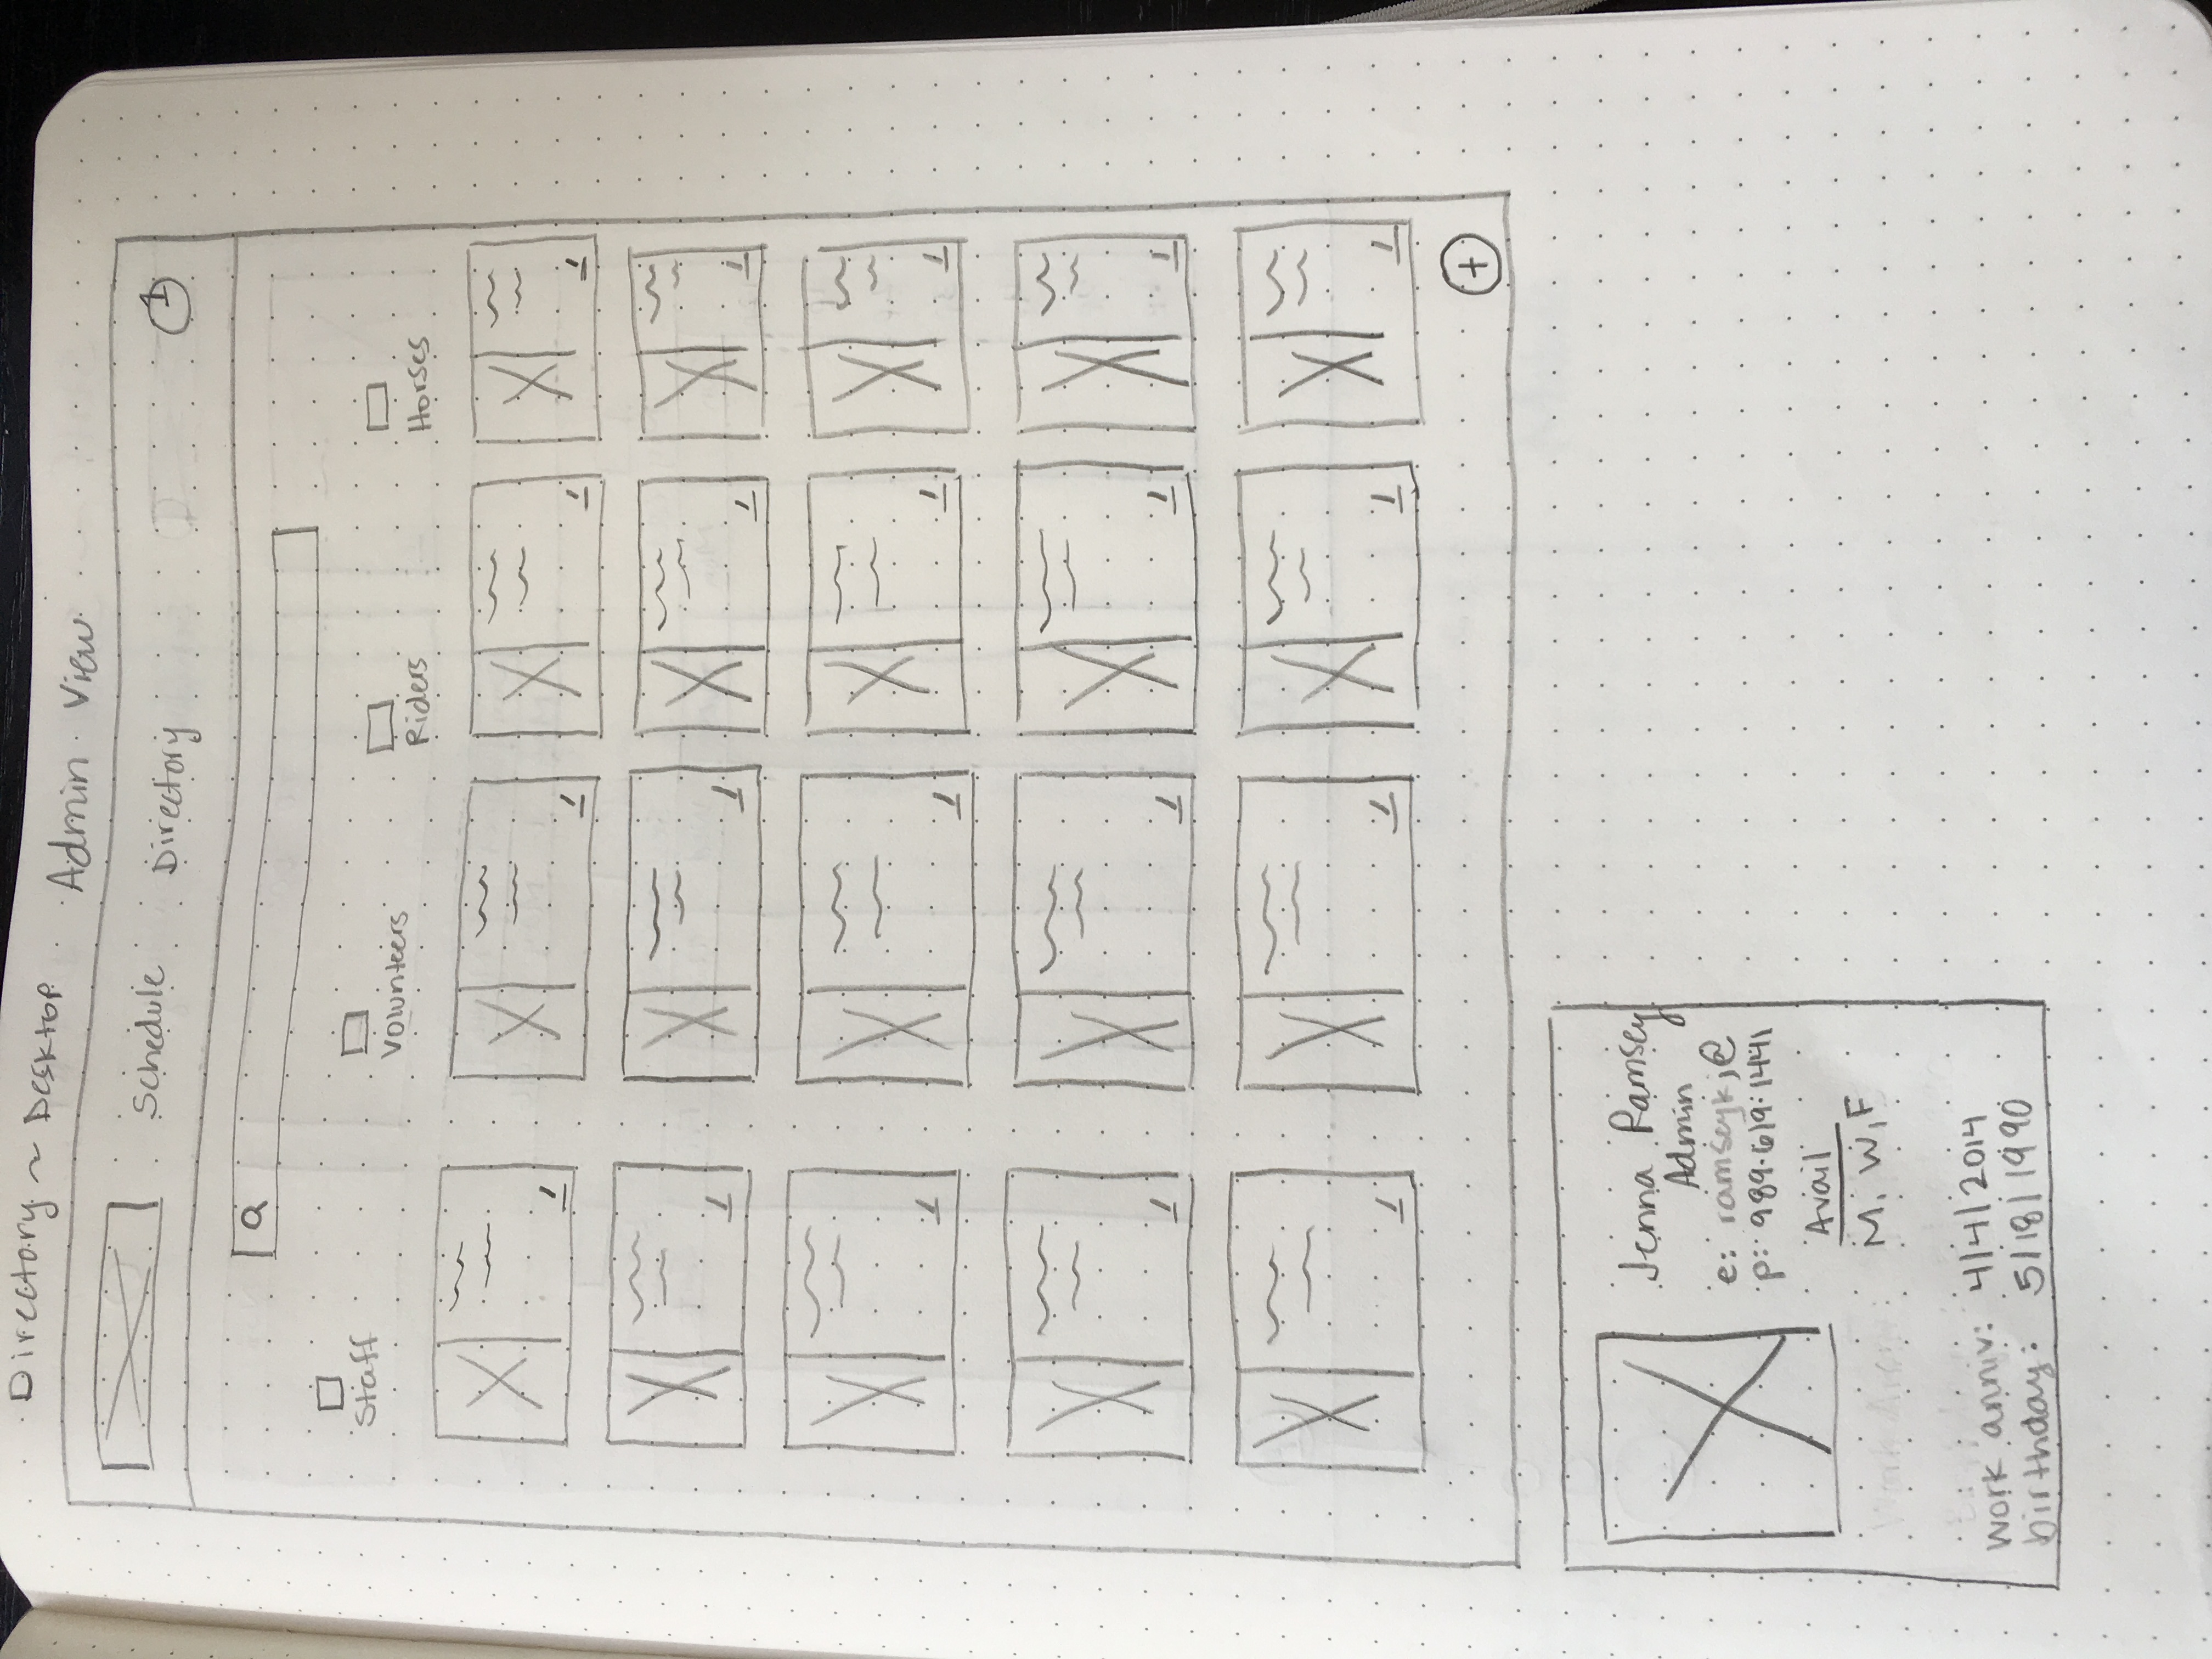 Directory ~ Desktop
Admin View
Schedule Directory
1
Staff Volunteers Riders Horses
+
Jenna Ramsey
Admin
e: ramseykj@
p: 989.619.1441
Avail
M, W, F
work anniv: 4/4/2014
birthday: 5/18/1990